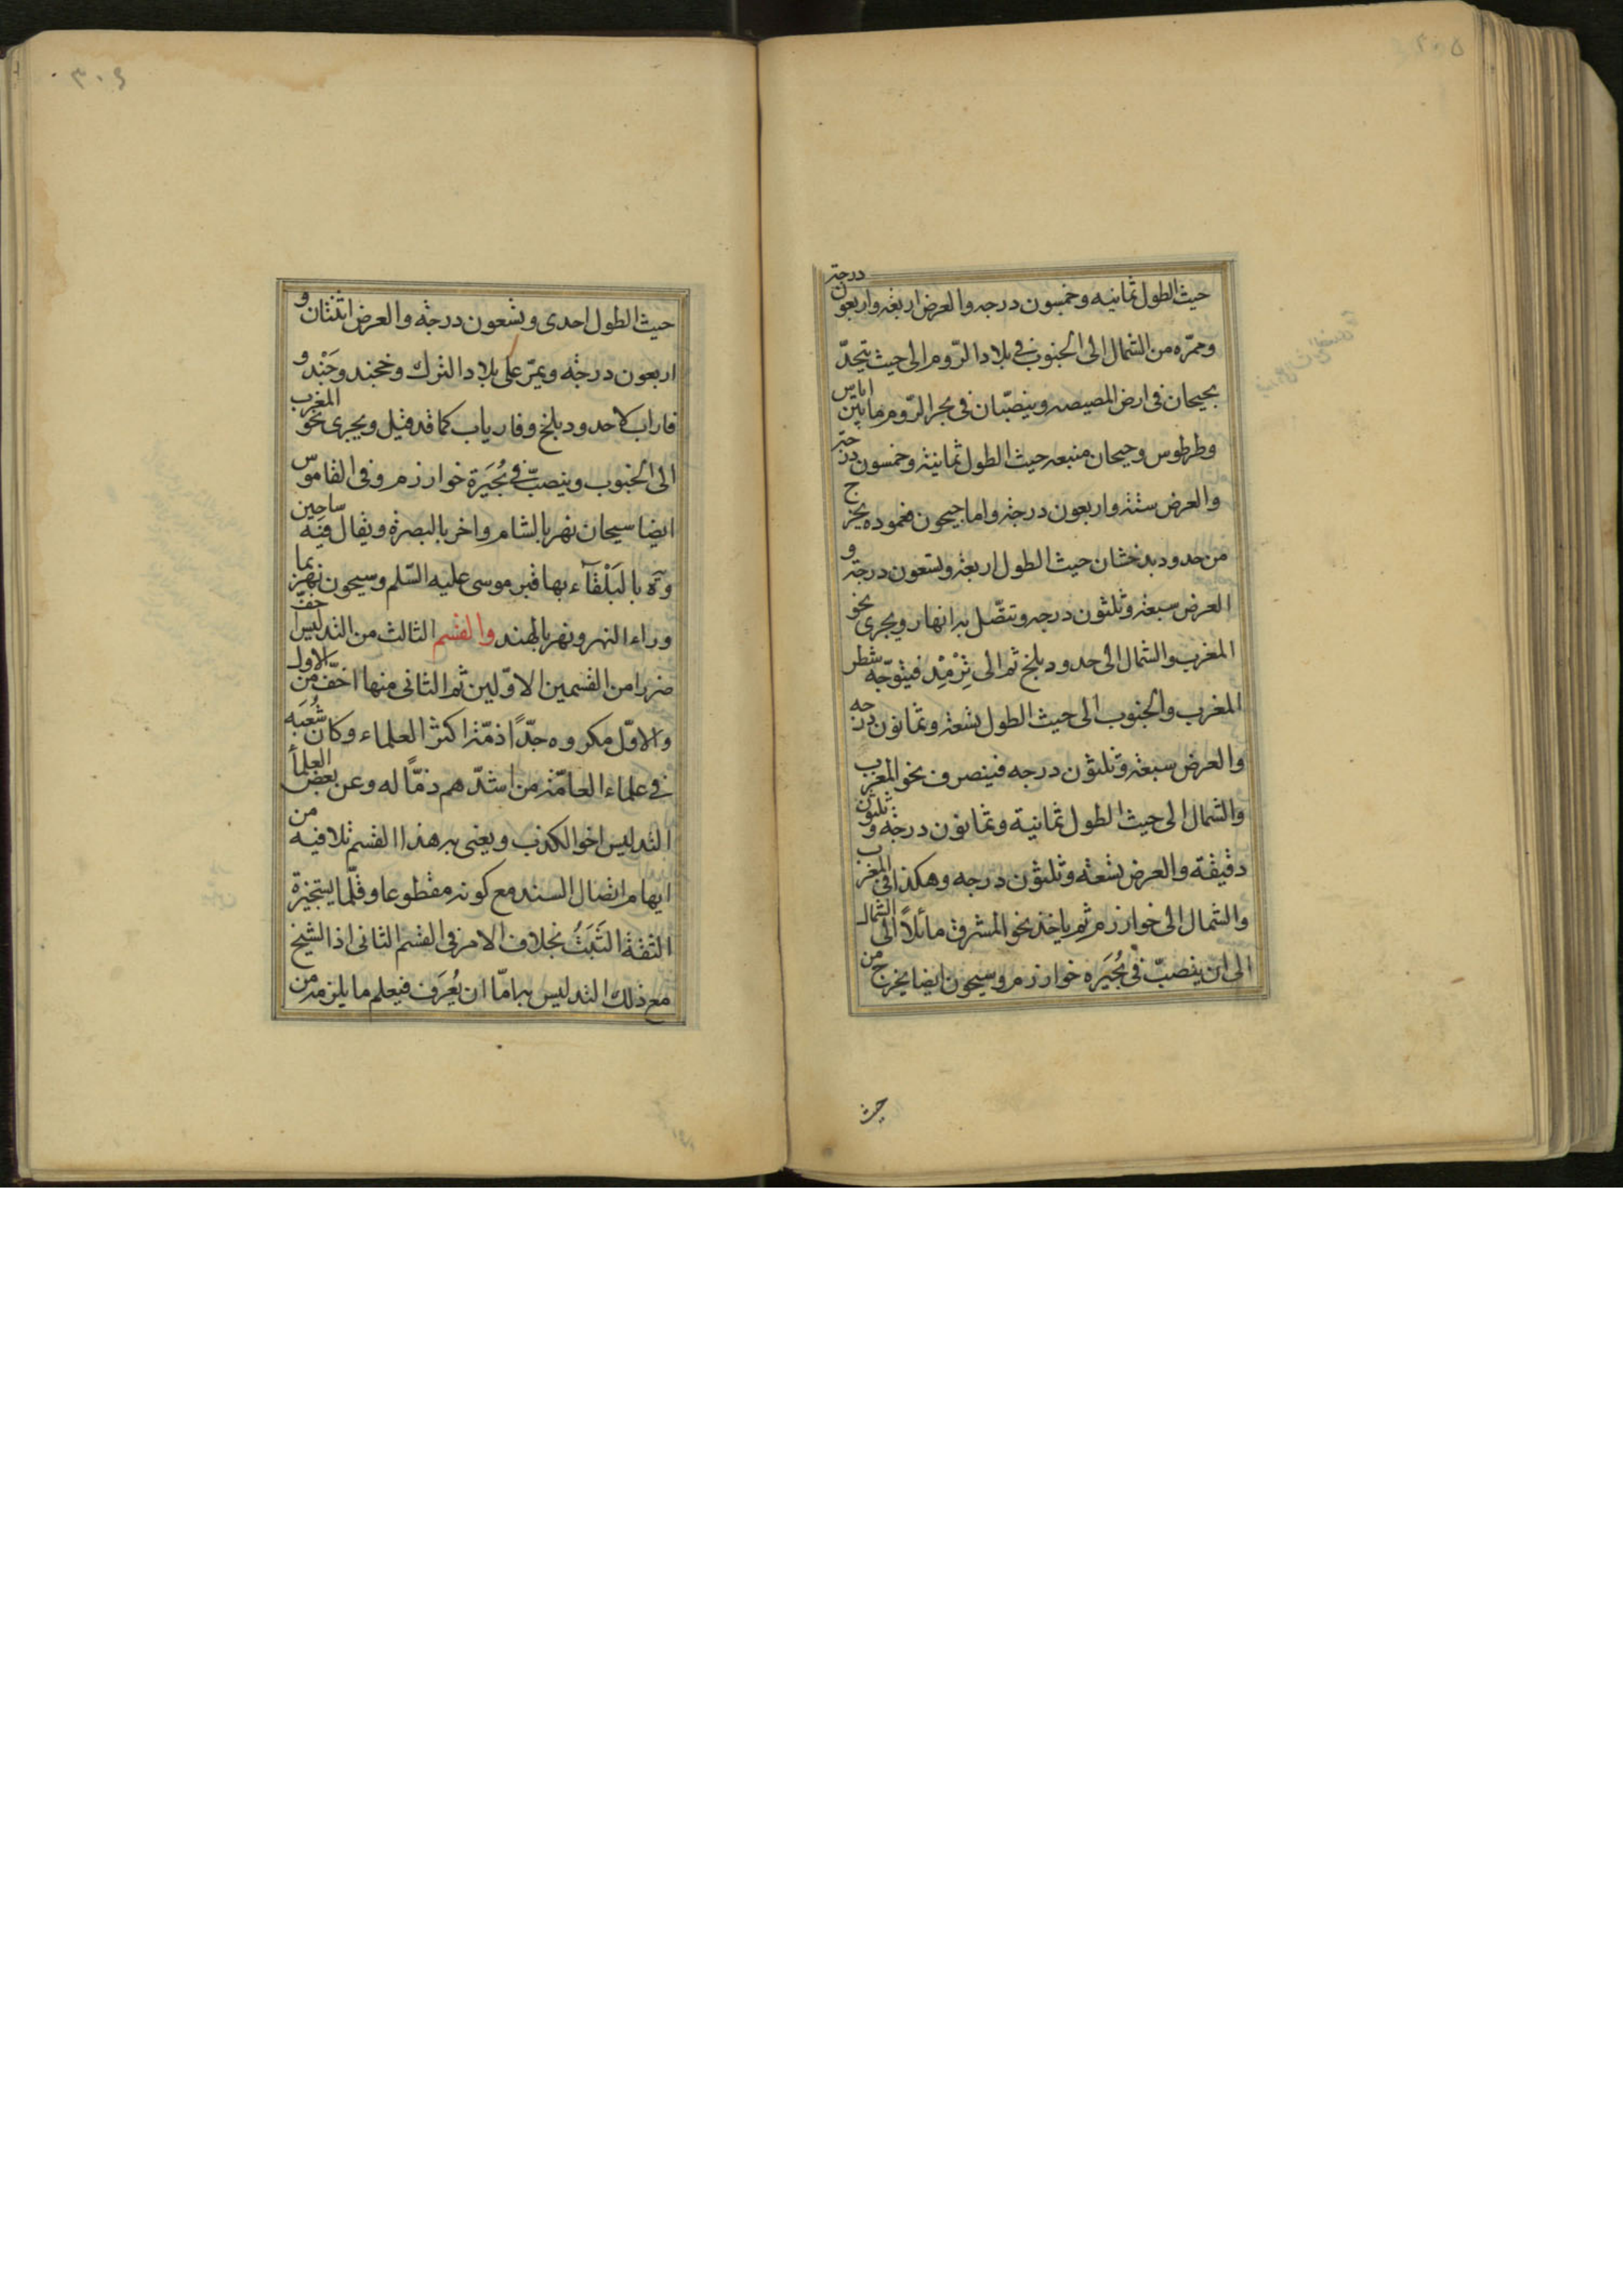 ٣٠٥
حيث الطول ثمانيه وخمسون درجه والعرض اربعة واربعون درجة
وممرّه من الشمال الى الجنوب فى بلاد الرّوم الى حيث يتحدّ
بجيحان فى ارض المصيصه وينصبّان فى بحر الرّوم ما بين اياس
وطرطوس وجيحان منبعه حيث الطول ثمانية وخمسون درجة
والعرض ستة واربعون درجة واما جيحون فعموده يخرج
من حدود بدخشان حيث الطول اربعة وتسعون درجة و
العرض سبعة وثلثون درجه وتتصّل به انهار ويجرى نحو
المغرب والشمال الى حدود بلخ ثم الى تِرْمِذ فيتوجّه شطر
المغرب والجنوب الى حيث الطول تسعة وثمانون درجه
والعرض سبعة وثلثون درجه فينصرف نحو المغرب
والشمال الى حيث الطول ثمانية وثمانون درجة وثلثون
دقيقة والعرض تسعة وثلثون درجه وهكذا فى المغرب
والشمال الى خوارزم ثم ياخذ نحو المشرق مائلاً الى الشمال
الى ان ينصبّ فى بُحَيَره خوارزم وسيحون ايضا يخرج من
حيث
٣٠٦
حيث الطول احدى وتسعون درجة والعرض اثنتان و
اربعون درجة ويمرّ على بلاد الترك وخجند وجَنْد و
فاراب لا حدود بلخ وفارياب كما قد قيل ويجرى نحو المغرب
الى الجنوب وينصبّ فى بُحَيَرة خوارزم وفى القاموس
ايضا سيحان نهر بالشام واخر بالبصرة ويقال فيه ساحين
وة بالبَلْقآء بها قبر موسى عليه السّلم وسيحون نهر بما
وراء النهر ونهر بالهند والقسم الثالث من التدليس اخفّ
ضررا من القسمين الاوّلين ثم الثانى منها اخفّ من الاول
والاوّل مكروه جدّاً ذمّه اكثر العلماء وكان شُعبَه
فى علماء العامّة من اشدّهم ذمّاً له وعن بعض العلمأ
التدليس اخو الكذب ويعنى به هذا القسم تلافيه من
ايهام اتصال السند مع كونه مقطوعا وقلّما يستجيزة
الثقة الثَبَتُ بخلاف الامر فى القسم الثانى اذ الشيخ
مع ذلك التدليس به امّا ان يُعرَف فيعلم ما يلزمه من